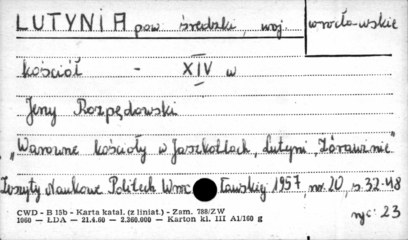 LUTYNIA pow średzki, woj. wrocławskie
kościół - XIV w
Jerzy Rozpędowski
„Warowne kościoły w Jaszkotlach, Lutyni, Żórawinie"
Zeszyty Naukowe Politech Wroc ławskiej 1957, nr. 20, s. 32-48
CWD - B 15b - Karta katal. (z liniat.) - Zam. 788/ZW
1060 — LDA — 21.4.60 — 2.360.000 — Karton kl. III A1/160 g
ryc. 23